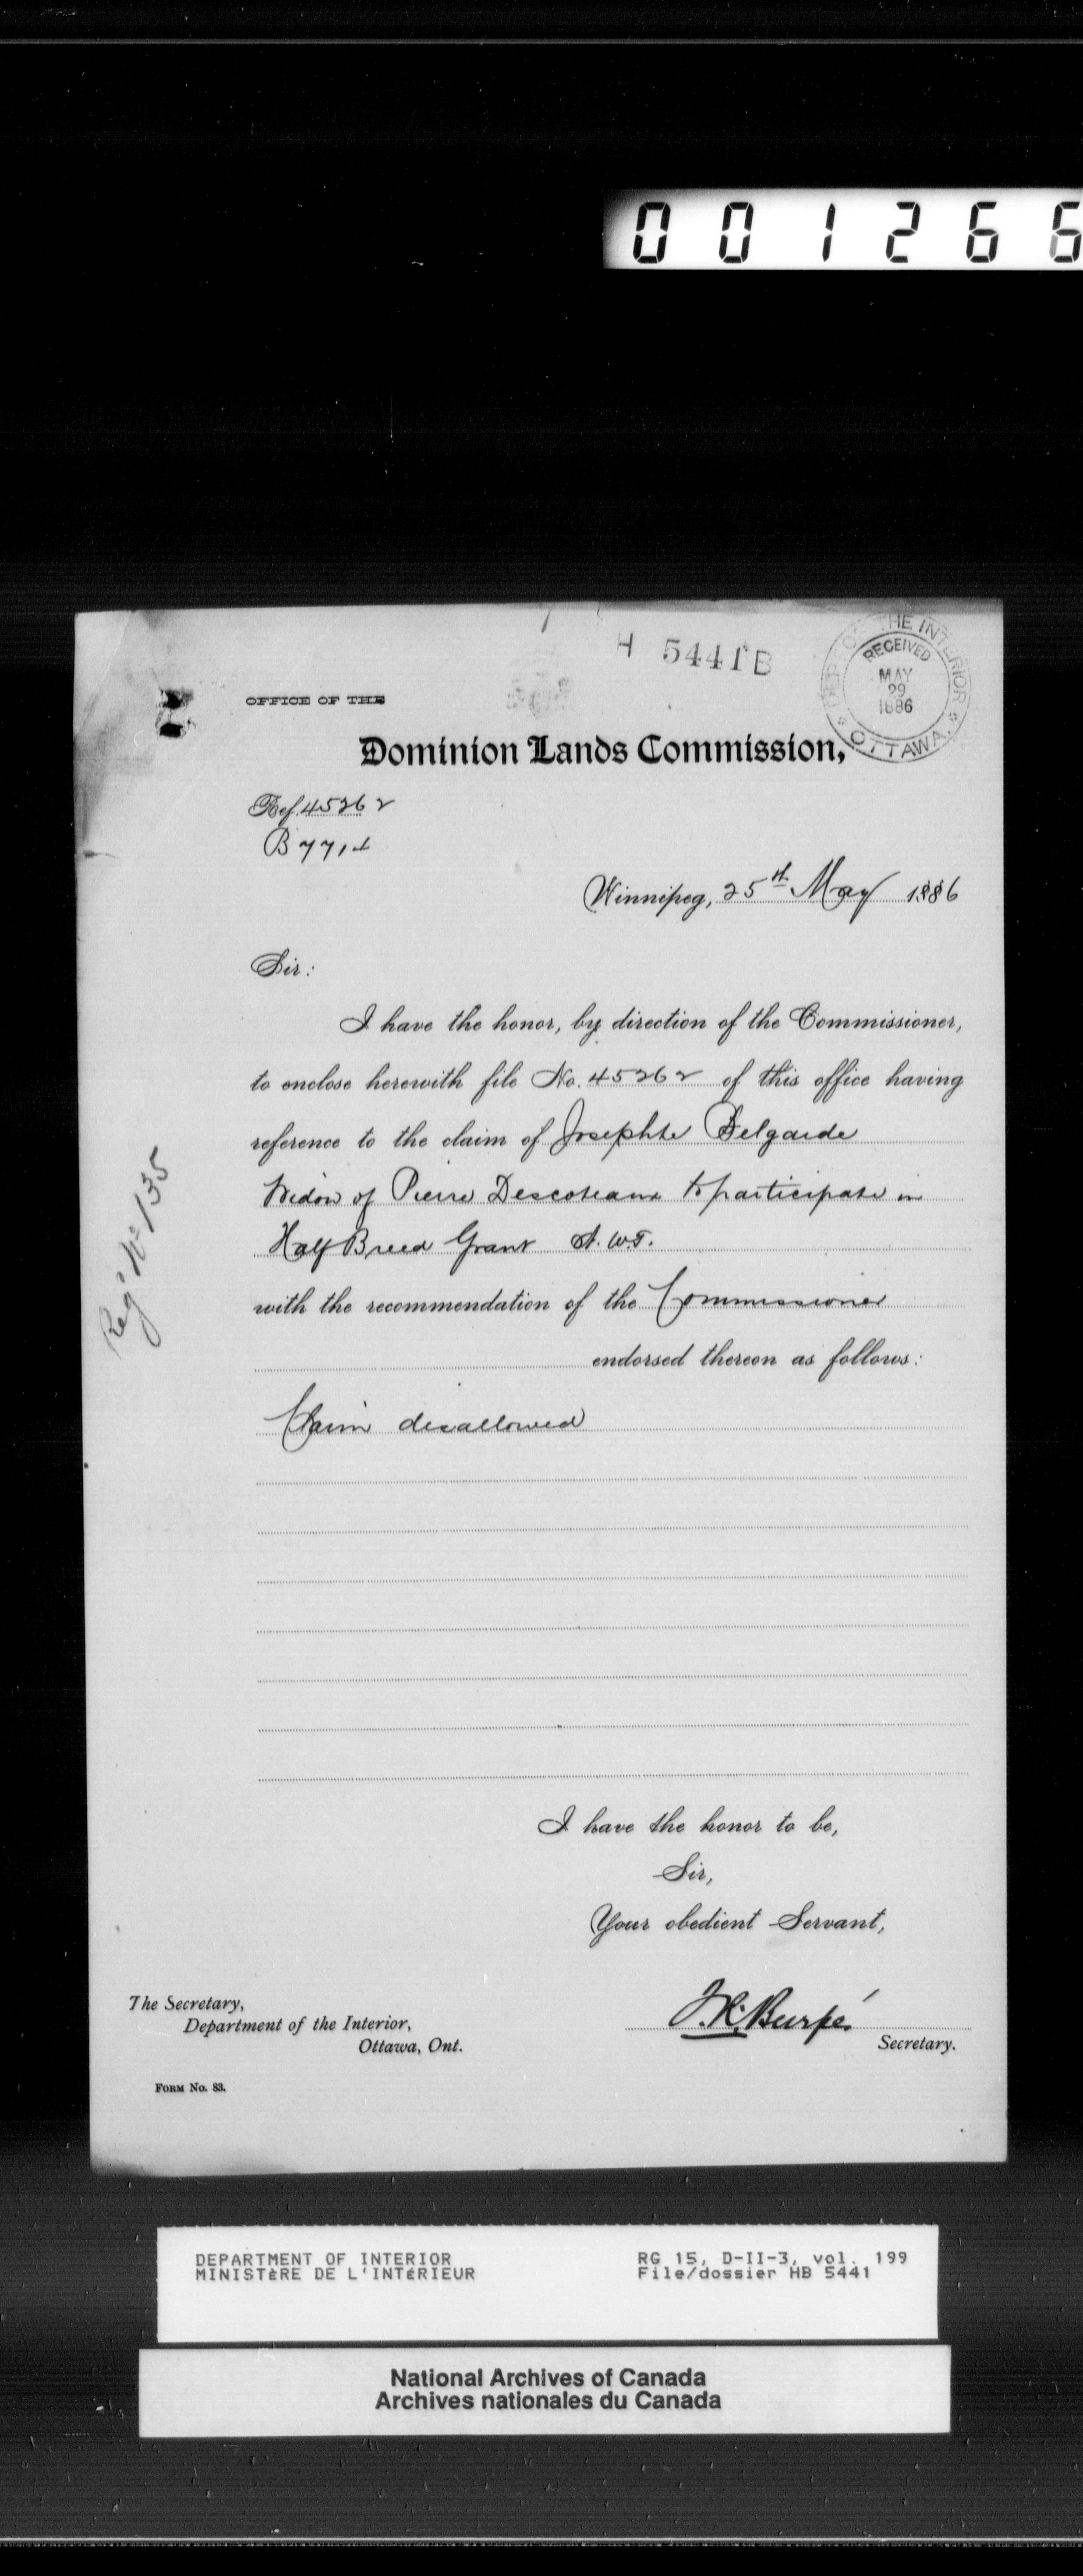 001266
H 5441 B
DEPT OF THE INTERIOR
RECEIVED
MAY
29
1886
OTTAWA.
OFFICE OF THE
Dominion Lands Commission,
Ref. 45262
B 7714
Winnipeg, 25th May 1886
Sir:
I have the honor, by direction of the Commissioner,
to enclose herewith file No. 45262 of this office having
reference to the claim of Josephte Belgarde
Widow of Pierre Descoteaux to participate in
Half Breed Grant N.W.T.
with the recommendation of the Commissioner
endorsed thereon as follows:
Claim disallowed
Reg' No 135
I have the honor to be,
Sir,
Your obedient Servant,
The Secretary,
Department of the Interior,
Ottawa, Ont.
Burpé.
Secretary.
FORM No. 83.
DEPARTMENT OF INTERIOR
MINISTÈRE DE L'INTÉRIEUR
RG 15, D-II-3, vol. 199
File/dossier HB 5441
National Archives of Canada
Archives nationales du Canada